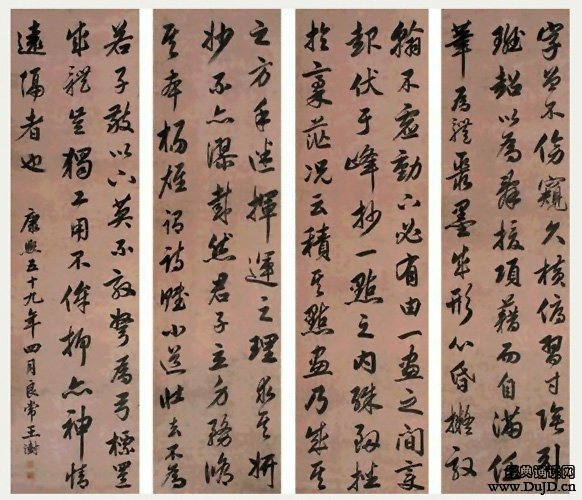 字曾不傍窺尺牘俯習寸陰引
班超以為辭援項藉而自滿任
筆為體聚墨成形心昏擬效
翰不虛動下必有由一畫之間變
起伏于峰杪一點之內殊衄挫
於毫芒況云積其點畫乃成其
之方手迷揮運之理求其妍
妙不亦謬哉然君子立身務修
其本楊雄謂詩賦小道壯夫不為
若子敬以下莫不鼓努為力標置
成體豈獨工用不侔抑亦神情
遠隔者也
康熙五十九年四月良常王澍
www.DujD.cn